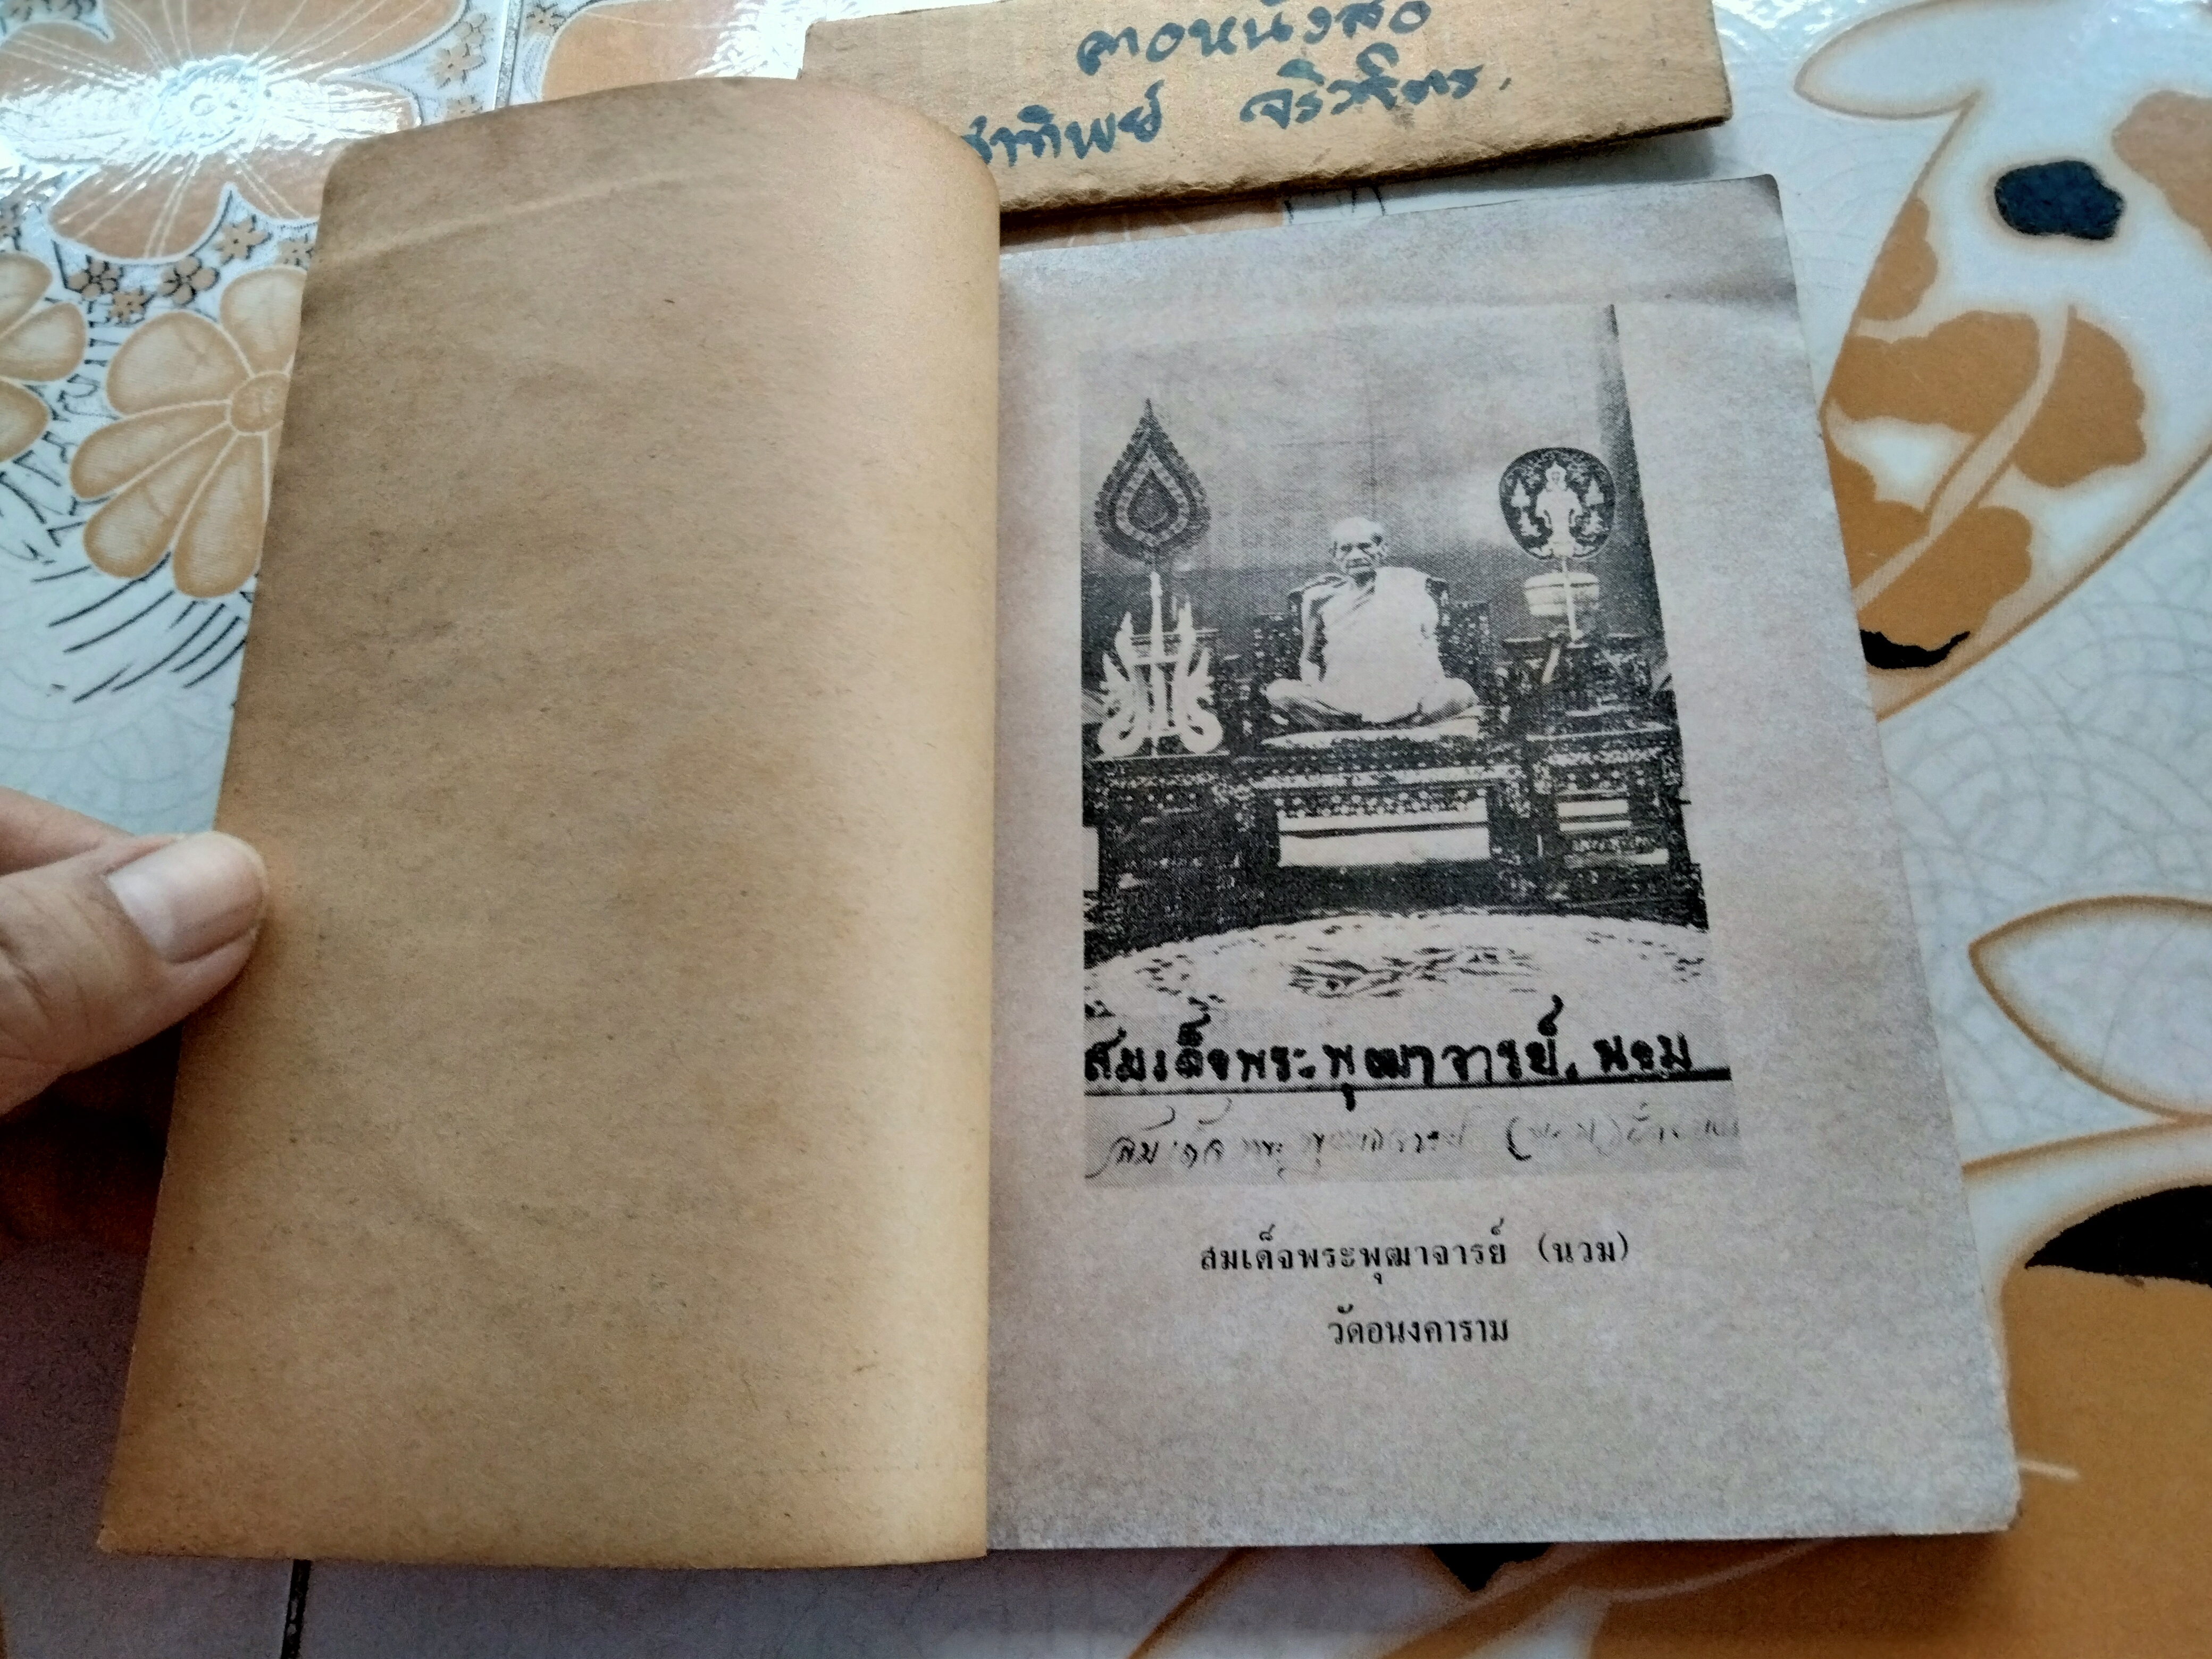 ลาอหนังสือ
ชาทิพย์
สมเด็จพระพุฒาจารย์. นวม
สมเด็จ พระพุฒาจารย์ (นวม)
สมเด็จพระพุฒาจารย์ (นวม)
วัดอนงคาราม